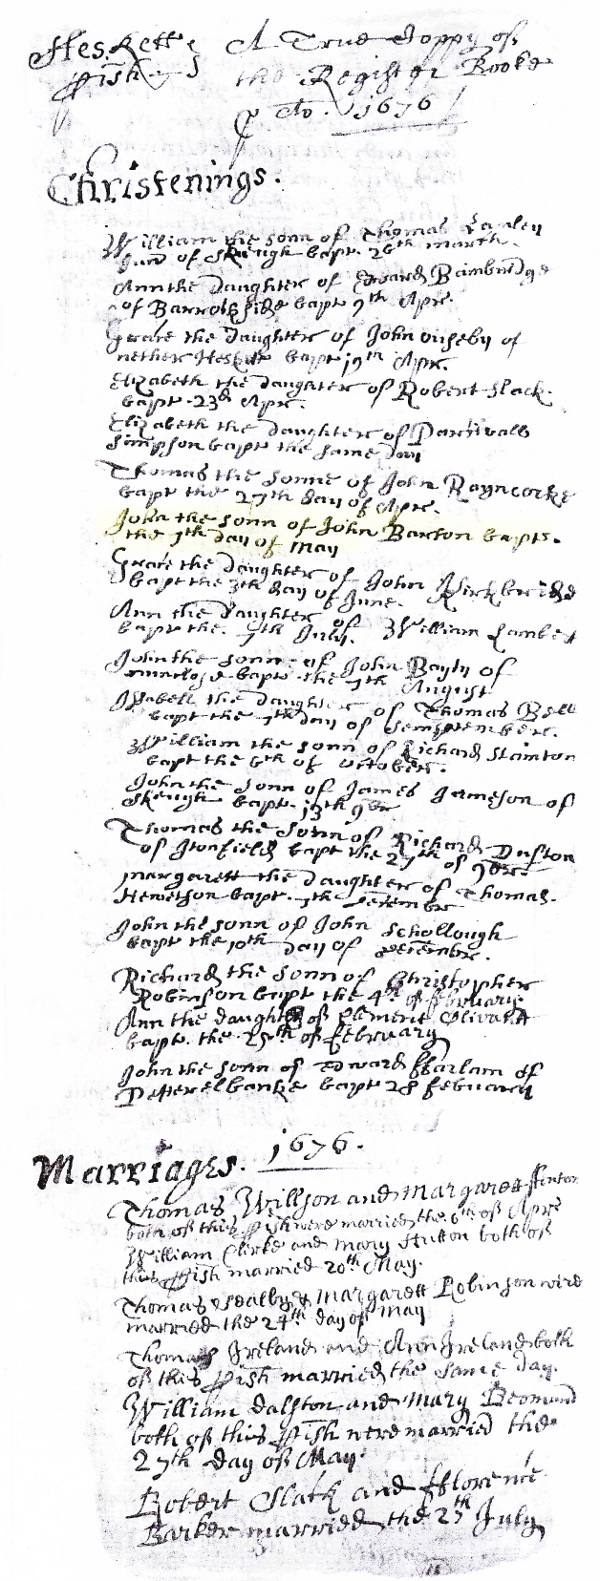 Heskett A True Coppy of
pish the Register Booke
Ao. 1676
Christenings.
William the sonn of Thomas
of bapt. 26th march.
Ann the Daughter of Edward Bambridge
of bapt 9th Apr.
Grace the Daughter of John of
nether Heskett bapt 19th Apr.
Elizabeth the daughter of Robert Slack.
bapt. 23d Apr.
Elizabeth the daughter of
Simpson bapt the same day
Thomas the sonne of John
bapt the 27th day of Apr.
John the sonn of John Barton bapt.
the 7th day of May
Grace the daughter of John Kirkbride
bapt the 3th day of June.
Ann the Daughter of William Lambert
bapt the. 7th July.
John the sonn of John Bayly of
bapt. the 7th August
Isabell the daughter of Thomas Bell
bapt the 7th day of Semptember.
William the sonn of Richard Stainton
bapt the 6th of October.
John the sonn of James Jameson of
Skeugh bapt. 13th 9br
Thomas the sonn of Richard
of bapt the 27th of 9bre
Margarett the daughter of Thomas
Hewetson bapt. 7th December
John the sonn of John Schollough
bapt the 10th day of December.
Richard the sonn of Christopher
Robinson bapt the 4th of february.
Ann the daughter of Clement
bapt. the 25th of february
John the sonn of Edward Harlam of
Petterelbanke bapt 28 febuuary
1676.
Marriages.
Thomas Willson and Margarett
both of this pish were married the 6th of Apr
William Clerke and Mary Hutton both of
this pish married 20th May.
Thomas & Margarett Robinson were
married the 24th day of May
Thomas Ireland and Ann Ireland both
of this pish married the same day.
William Dalston and Mary
both of this pish were married the
27th day of May.
Robert Slack and fflorence
Barker married the 25th July